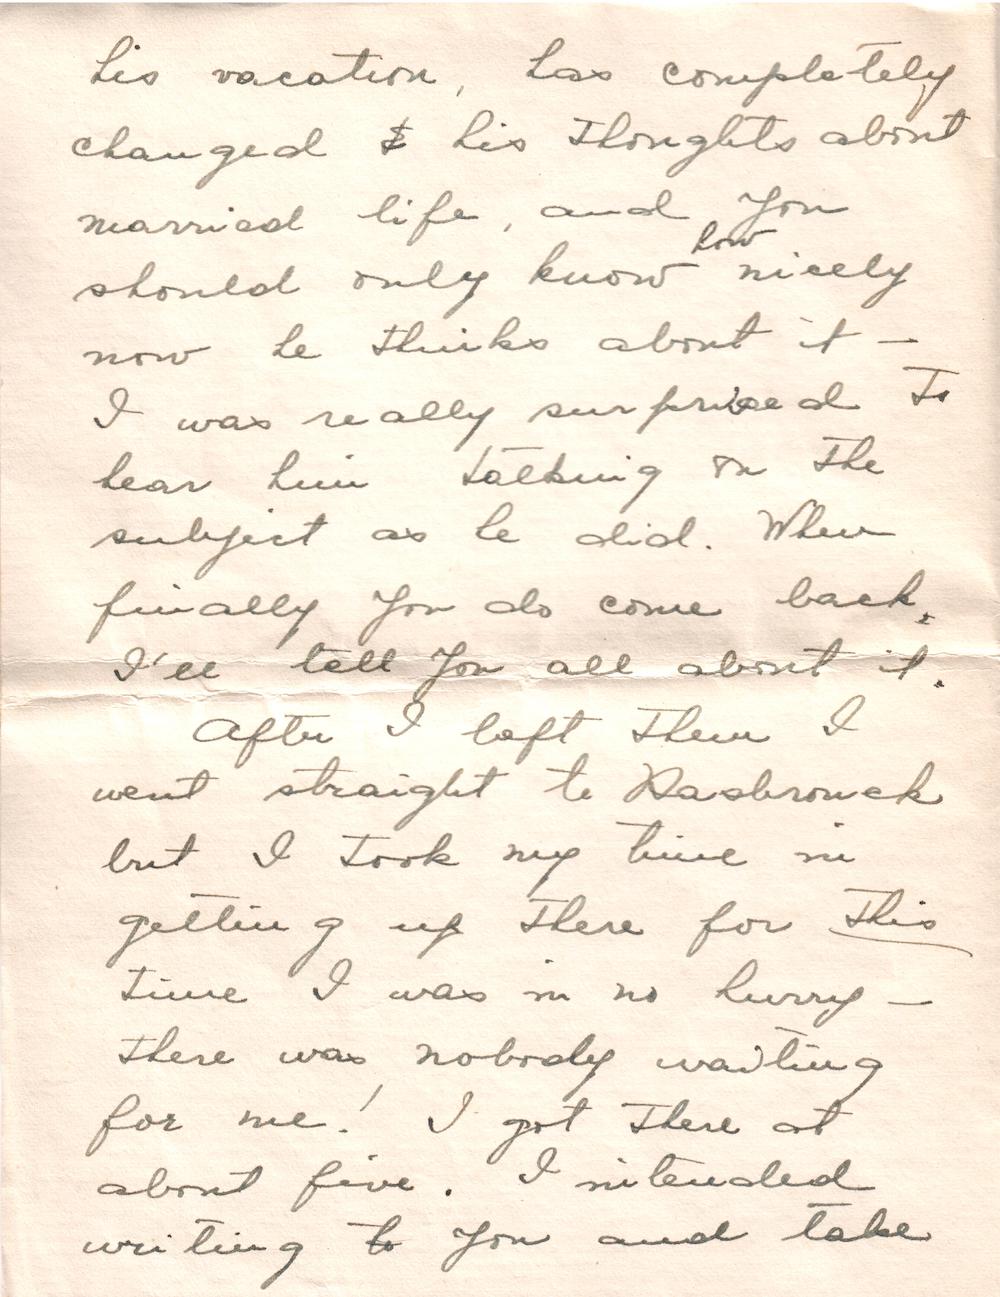 his vacation, has completely
changed & his thoughts about
married life, and you
should only know how nicely
now he thinks about it —
I was really surprised to
hear him talking on the
subject as he did. When
finally you do come back.
I'll tell you all about it.
After I left them I
went straight to Hasbrouck
but I took my time in
getting up there for this
time I was in no hurry —
there was nobody waiting
for me! I got there at
about five. I intended
writing to you and take